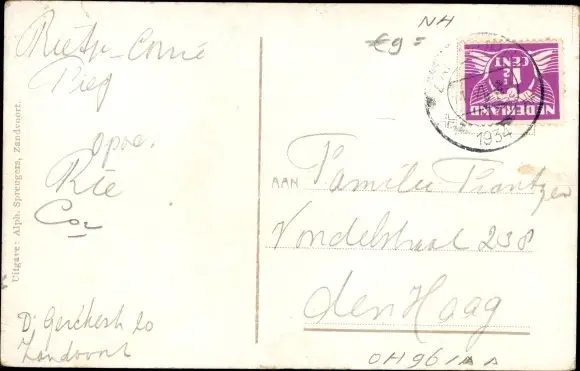 Rietje - Corrie
Piet
opoe.
Rie
Cor
D. Gerkesh 20
Zandvoort
Uitgave: Alph. Sprengers, Zandvoort.
NH
€9=
1½
CENT
NEDERLAND
1934
AAN Familie Frantzen
Vondelstraat 238
den Haag
OH961AA